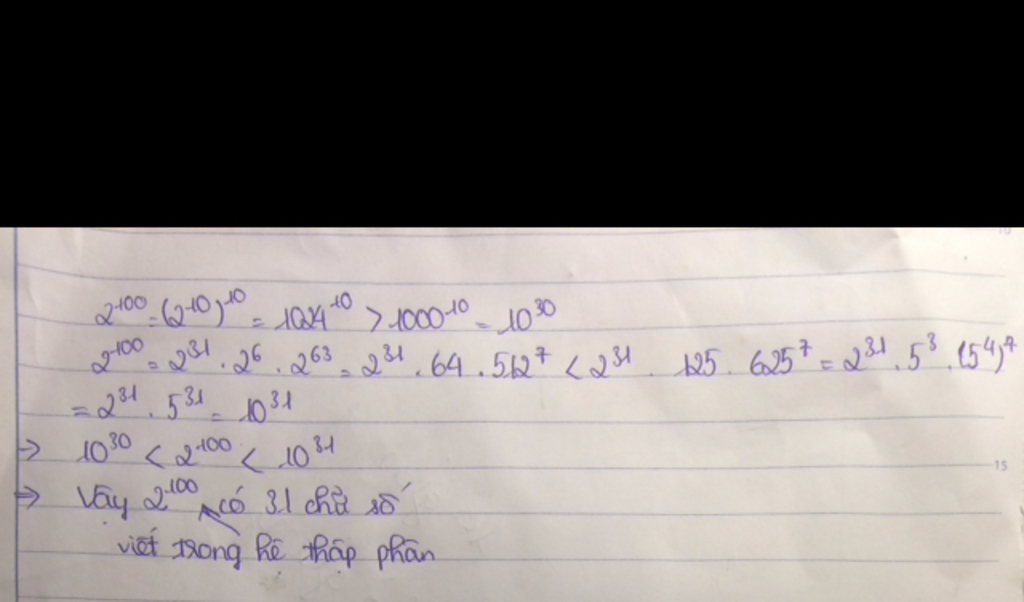 2^100 = (2^10)^10 = 1024^10 > 1000^10 = 10^30
2^100 = 2^31 . 2^6 . 2^63 = 2^31 . 64 . 512^7 < 2^31 . 125 . 625^7 = 2^31 . 5^3 . (5^4)^7
= 2^31 . 5^31 = 10^31
→ 10^30 < 2^100 < 10^31
⇒ Vậy 2^100 có 31 chữ số
viết trong hệ thập phân
15